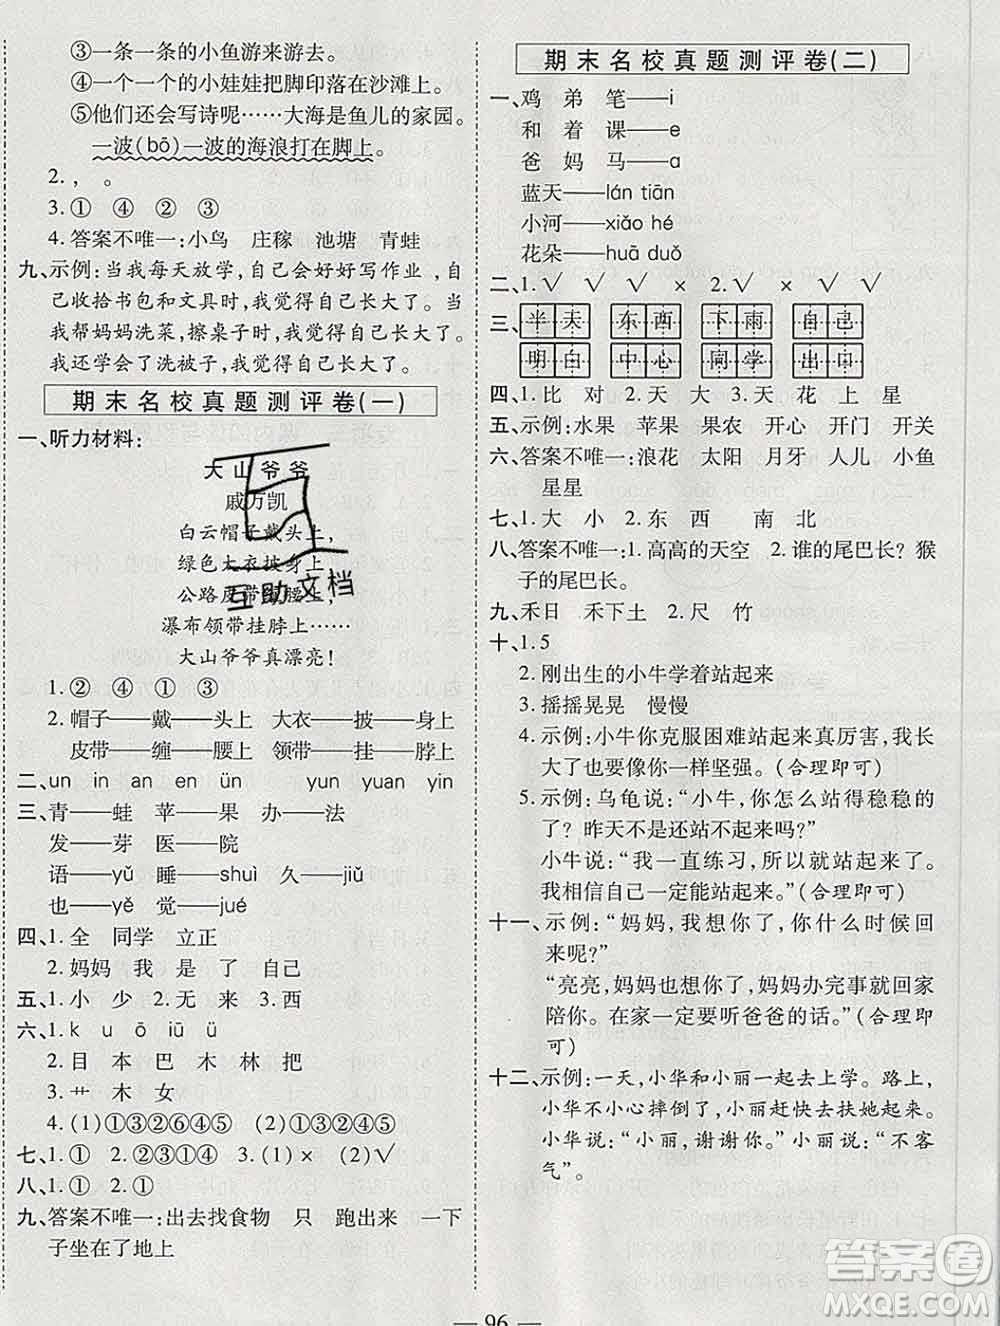 ③一条一条的小鱼游来游去。
④一个一个的小娃娃把脚印落在沙滩上。
⑤他们还会写诗呢……大海是鱼儿的家园。
一波(bō)一波的海浪打在脚上。
2. ， 。
3. ① ④ ② ③
4. 答案不唯一:小鸟 庄稼 池塘 青蛙
九、示例:当我每天放学,自己会好好写作业,自
己收拾书包和文具时,我觉得自己长大了。当
我帮妈妈洗菜,擦桌子时,我觉得自己长大了。
我还学会了洗被子,我觉得自己长大了。
期末名校真题测评卷(一)
一、听力材料:
大山爷爷
戚万凯
白云帽子戴头上,
绿色大衣披身上,
公路皮带缠腰上,
瀑布领带挂脖上……
大山爷爷真漂亮!
互助文档
1. ②④①③
2. 帽子——戴——头上 大衣——披——身上
皮带——缠——腰上 领带——挂——脖上
二、un in an en ün yun yuan yin
三、青——蛙 苹——果 办——法
发——芽 医——院
语——yǔ 睡——shuì 久——jiǔ
也——yě 觉——jué
四、1. 全 同学 立正
2. 妈妈 我 是 了 自己
五、1. 小 少 2. 无 来 3. 西
六、1. k u ō iū ü
2. 目 本 巴 木 林 把
3. 艹 木 女
4. (1)①③②⑥④⑤ (2)②①③④⑤
七、1. ① 2. ②③①④ 3. (1)× (2)√
八、1. ① 2. ①
九、答案不唯一:出去找食物 只 跑出来 一下
子坐在了地上
期末名校真题测评卷(二)
一、鸡 弟 笔——i
和 着 课——e
爸 妈 马——ɑ
蓝天——lán tiān
小河——xiǎo hé
花朵——huā duǒ
二、1. √ √ √ × 2. √ × √ √
三、半天 东西 下雨 自己
明白 中心 同学 出口
四、1. 比 对 2. 天 大 3. 天 花 上 星
五、示例:水果 苹果 果农 开心 开门 开关
六、答案不唯一:浪花 太阳 月牙 人儿 小鱼
星星
七、1. 大 小 2. 东 西 南 北
八、答案不唯一:1. 高高的天空 2. 谁的尾巴长? 猴
子的尾巴长。
九、禾日 禾下土 2. 尺 竹
十、1. 5
2. 刚出生的小牛学着站起来
3. 摇摇晃晃 慢慢
4. 示例:小牛你克服困难站起来真厉害,我长
大了也要像你一样坚强。(合理即可)
5. 示例:乌龟说:“小牛,你怎么站得稳稳的
了? 昨天不是还站不起来吗?”
小牛说:“我一直练习,所以就站起来了。
我相信自己一定能站起来。”(合理即可)
十一、示例:“妈妈,我想你了,你什么时候回
来呢?”
“亮亮,妈妈也想你,妈妈办完事就回家
陪你。在家一定要听爸爸的话。”(合理即
可)
十二、示例:一天,小华和小丽一起去上学。路上,
小华不小心摔倒了,小丽赶快去扶她起来。
小华说:“小丽,谢谢你。”小丽说:“不客
气”。
— 96 —
答案圈
MXQE.COM